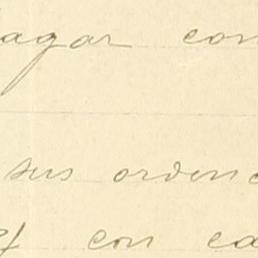 agar con
sus ordene
con ca